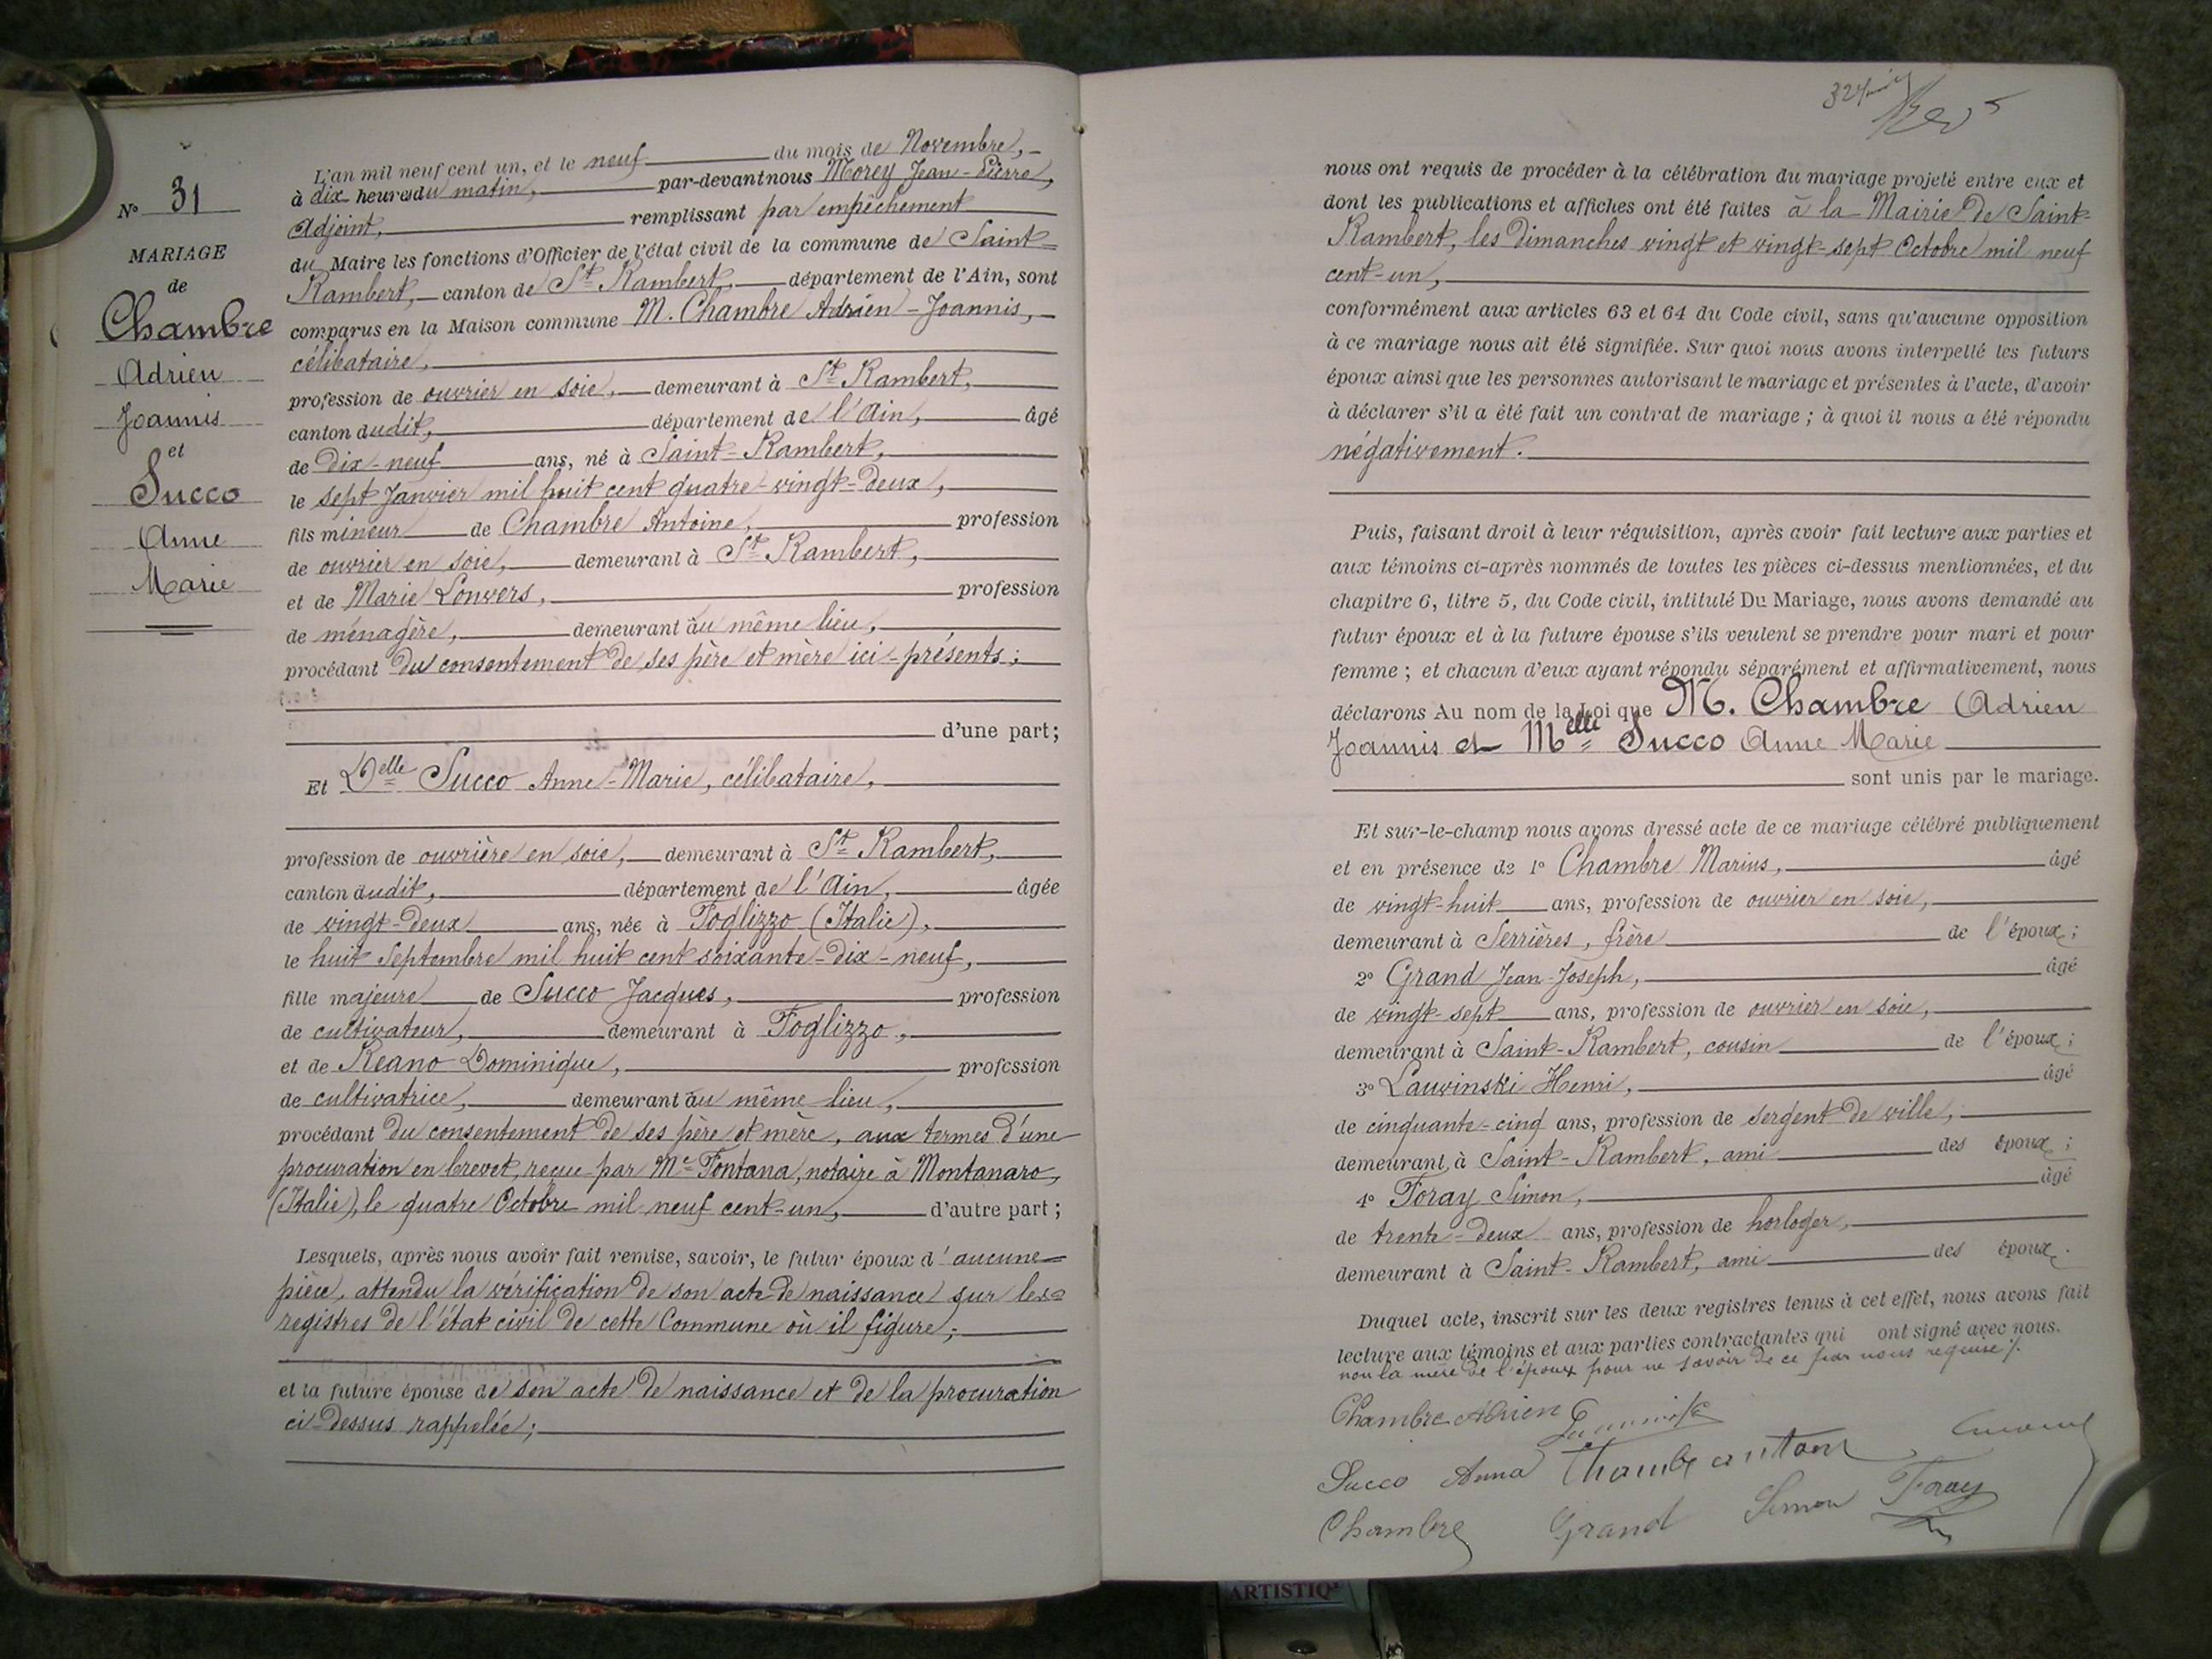 N° 31
MARIAGE
de
Chambre
Adrien
Joannis
et
Succo
Anne
Marie
L'an mil neuf cent un, et le neuf du mois de Novembre,
à dix heures du matin, par-devant nous Morey Jean-Pierre,
Adjoint, remplissant par empêchement
du Maire les fonctions d'Officier de l'état civil de la commune de Saint-
Rambert, canton de St Rambert, département de l'Ain, sont
comparus en la Maison commune M. Chambre Adrien-Joannis,
célibataire,
profession de ouvrier en soie, demeurant à St Rambert,
canton dudit, département de l'Ain, âgé
de dix-neuf ans, né à Saint-Rambert,
le sept Janvier mil huit cent quatre-vingt-deux,
fils mineur de Chambre Antoine, profession
de ouvrier en soie, demeurant à St Rambert,
et de Marie Louvers, profession
de ménagère, demeurant au même lieu,
procédant du consentement de ses père et mère ici-présents;
d'une part;
Et Delle Succo Anne-Marie, célibataire,
profession de ouvrière en soie, demeurant à St Rambert,
canton dudit, département de l'Ain, âgée
de vingt-deux ans, née à Foglizzo (Italie),
le huit Septembre mil huit cent soixante-dix-neuf,
fille majeure de Succo Jacques, profession
de cultivateur, demeurant à Foglizzo,
et de Reano Dominique, profession
de cultivatrice, demeurant au même lieu,
procédant du consentement de ses père et mère, aux termes d'une
procuration en brevet, reçue par Me Fontana, notaire à Montanaro,
(Italie), le quatre Octobre mil neuf cent-un, d'autre part;
Lesquels, après nous avoir fait remise, savoir, le futur époux d'aucune
pièce, attendu la vérification de son acte de naissance sur les
registres de l'état civil de cette Commune où il figure;
et la future épouse de son acte de naissance et de la procuration
ci-dessus rappelée;
nous ont requis de procéder à la célébration du mariage projeté entre eux et
dont les publications et affiches ont été faites à la Mairie de Saint-
Rambert, les Dimanches vingt et vingt-sept Octobre mil neuf
cent-un,
conformément aux articles 63 et 64 du Code civil, sans qu'aucune opposition
à ce mariage nous ait été signifiée. Sur quoi nous avons interpellé les futurs
époux ainsi que les personnes autorisant le mariage et présentes à l'acte, d'avoir
à déclarer s'il a été fait un contrat de mariage; à quoi il nous a été répondu
négativement.
Puis, faisant droit à leur réquisition, après avoir fait lecture aux parties et
aux témoins ci-après nommés de toutes les pièces ci-dessus mentionnées, et du
chapitre 6, titre 5, du Code civil, intitulé Du Mariage, nous avons demandé au
futur époux et à la future épouse s'ils veulent se prendre pour mari et pour
femme; et chacun d'eux ayant répondu séparément et affirmativement, nous
déclarons Au nom de la Loi que M. Chambre Adrien
Joannis et Melle Succo Anne Marie
sont unis par le mariage.
Et sur-le-champ nous avons dressé acte de ce mariage célébré publiquement
et en présence de 1° Chambre Marius, âgé
de vingt-huit ans, profession de ouvrier en soie,
demeurant à Serrières, frère de l'époux;
2° Grand Jean-Joseph, âgé
de vingt-sept ans, profession de ouvrier en soie,
demeurant à Saint-Rambert, cousin de l'époux;
3° Lauwinski Henri, âgé
de cinquante-cinq ans, profession de sergent de ville,
demeurant à Saint-Rambert, ami des époux;
4° Foray Simon, âgé
de trente-deux ans, profession de horloger,
demeurant à Saint-Rambert, ami des époux.
Duquel acte, inscrit sur les deux registres tenus à cet effet, nous avons fait
lecture aux témoins et aux parties contractantes qui ont signé avec nous.
non la mère de l'époux pour ne savoir de ce par nous requise
Chambre Adrien
Succo Anna
Chambre Grand Simon Foray
ARTISTIQ